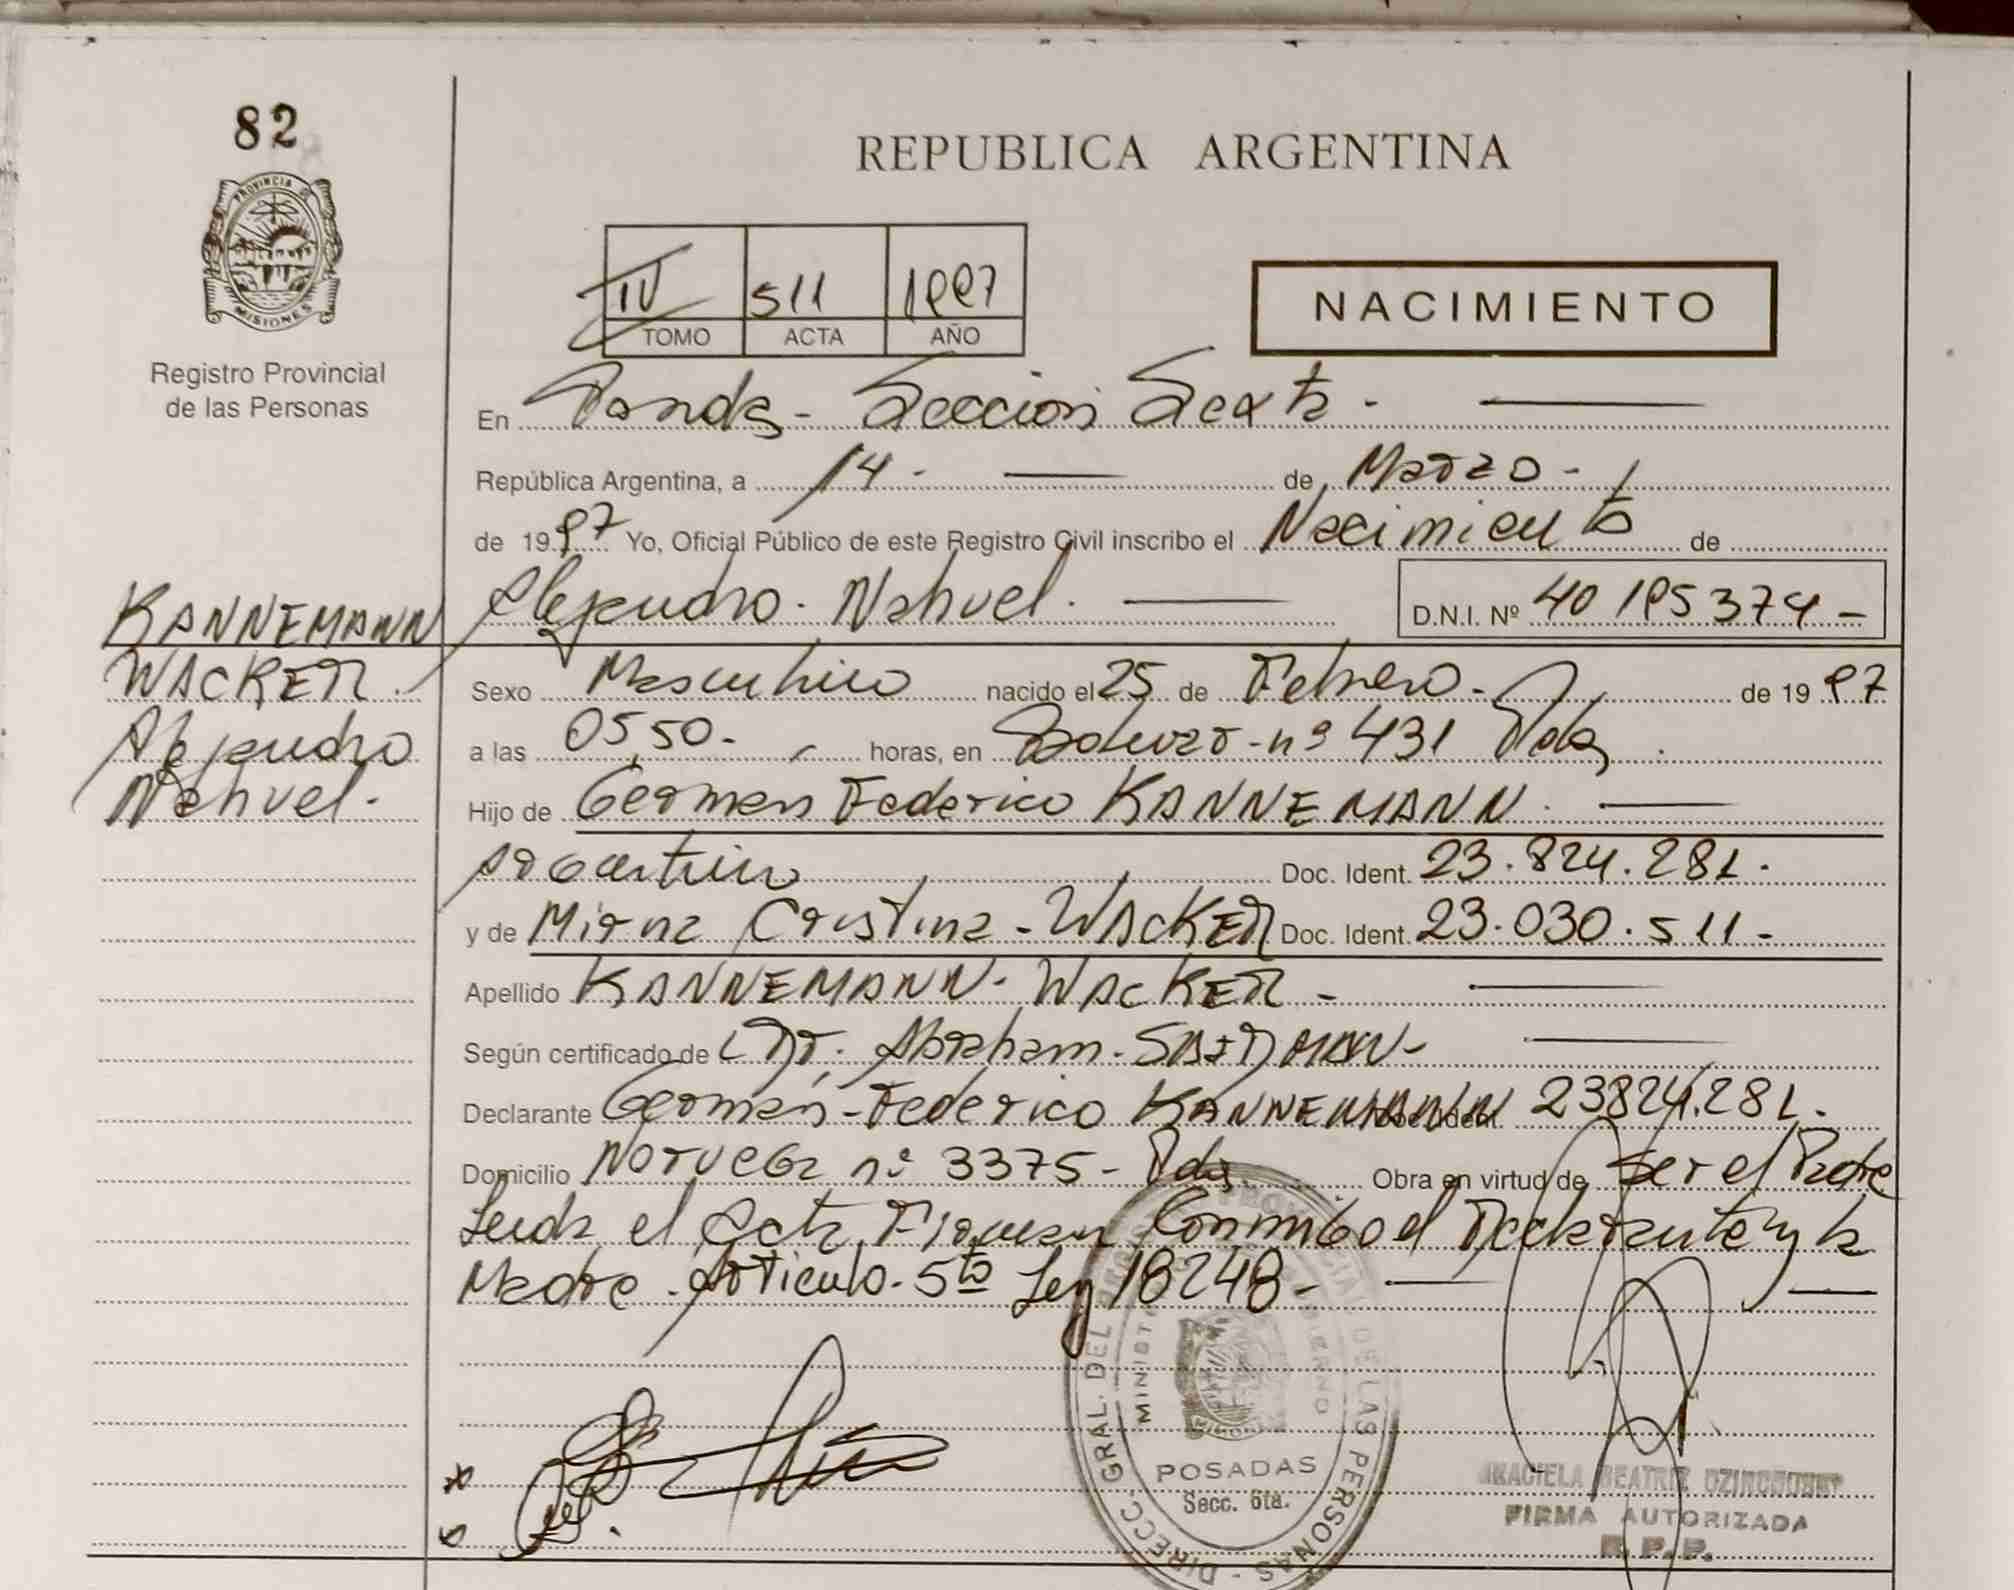 82
PROVINCIA DE
MISIONES
Registro Provincial
de las Personas
REPUBLICA ARGENTINA
IV 511 1997
TOMO ACTA AÑO
NACIMIENTO
En Posadas - Sección Sexta -
República Argentina, a 14 - de Marzo -
de 1997 Yo, Oficial Público de este Registro Civil inscribo el Nacimiento de
Alejandro Nahuel. D.N.I. Nº 40195374 -
KANNEMANN
WACKER.
Alejandro
Nahuel -
Sexo Masculino nacido el 25 de Febrero - de 1997
a las 05,50 - horas, en Bolivar - nº 431 Pdas
Hijo de Germán Federico KANNEMANN.
Argentino Doc. Ident. 23.824.281.
y de Mirna Cristina - WACKER Doc. Ident. 23.030.511 -
Apellido KANNEMANN - WACKER -
Según certificado de Dr. Abraham -
Declarante Germán - Federico KANNEMANN 23824.281.
Domicilio Noruega nº 3375 - Pdas Obra en virtud de Ser el Padre
Leida el Acta Firman Conmigo el Declarante y la
Madre - Articulo - 5to Ley 18248 -
DIRECC. GRAL. DEL REG. PROVINCIAL DE LAS PERSONAS
POSADAS
Secc. 6ta.
GRACIELA BEATRIZ
FIRMA AUTORIZADA
R. P. P.